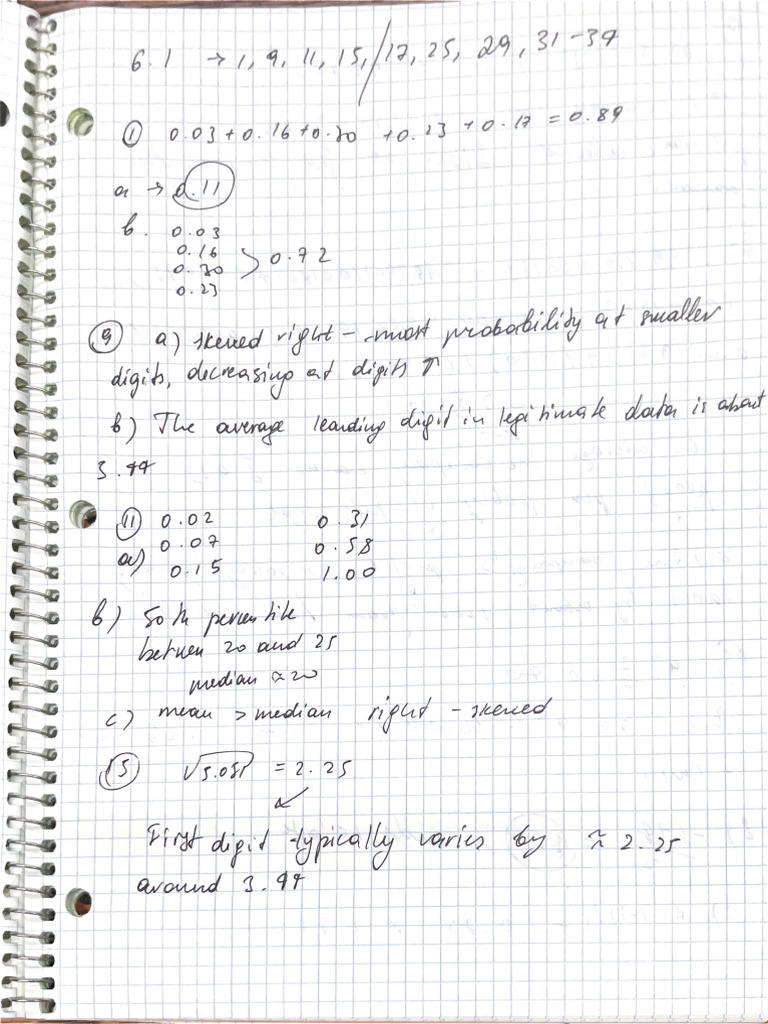 6.1 → 1, 9, 11, 15, / 17, 25, 29, 31-34
① 0.03 + 0.16 + 0.30 + 0.23 + 0.17 = 0.89
a → 0.11
b. 0.03
0.16
0.30 > 0.72
0.23
⑨ a) skewed right - most probability at smaller
digits, decreasing at digits ↑
b) The average leading digit in legitimate data is about
3.44
⑪ 0.02 0.31
a) 0.07 0.58
0.15 1.00
b) 50th percentile
between 20 and 25
median ≈ 20
c) mean > median right - skewed
⑮ √5.051 = 2.25
↙
First digit typically varies by ≈ 2.25
around 3.44